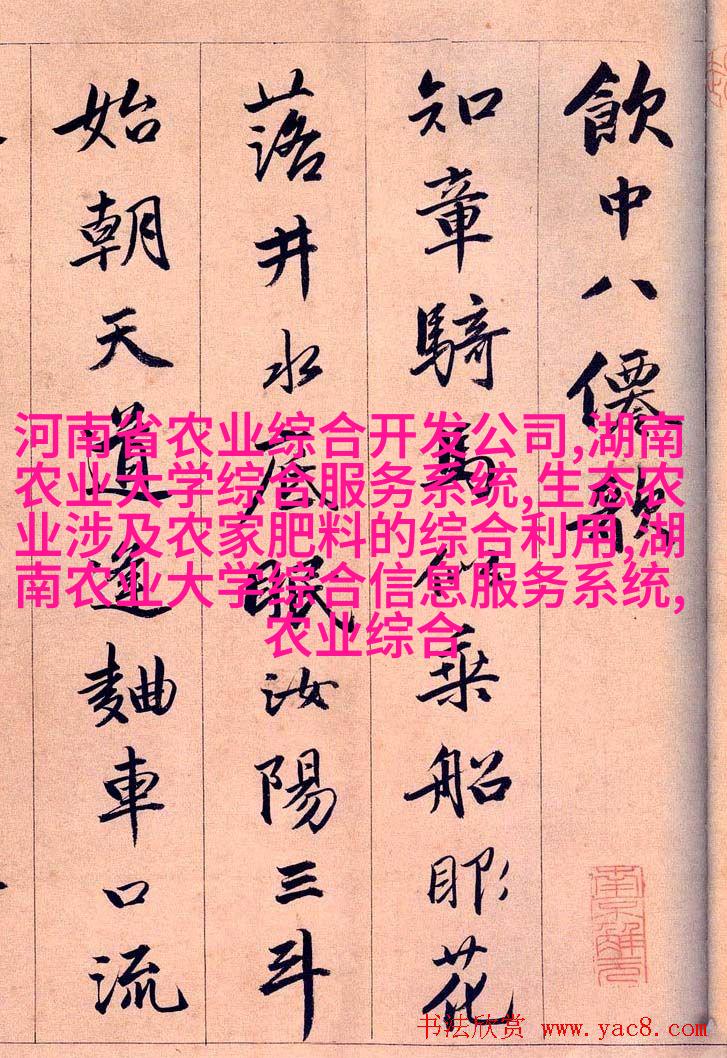 飲中八僊歌
知章騎馬似乗船眼花
落井水底眠汝陽三斗
始朝天道逢麯車口流
河南省农业综合开发公司,湖南
农业大学综合服务系统,生态农
业涉及农家肥料的综合利用,湖
南农业大学综合信息服务系统,
农业综合
南京解元
书法欣赏 www.yac8.com